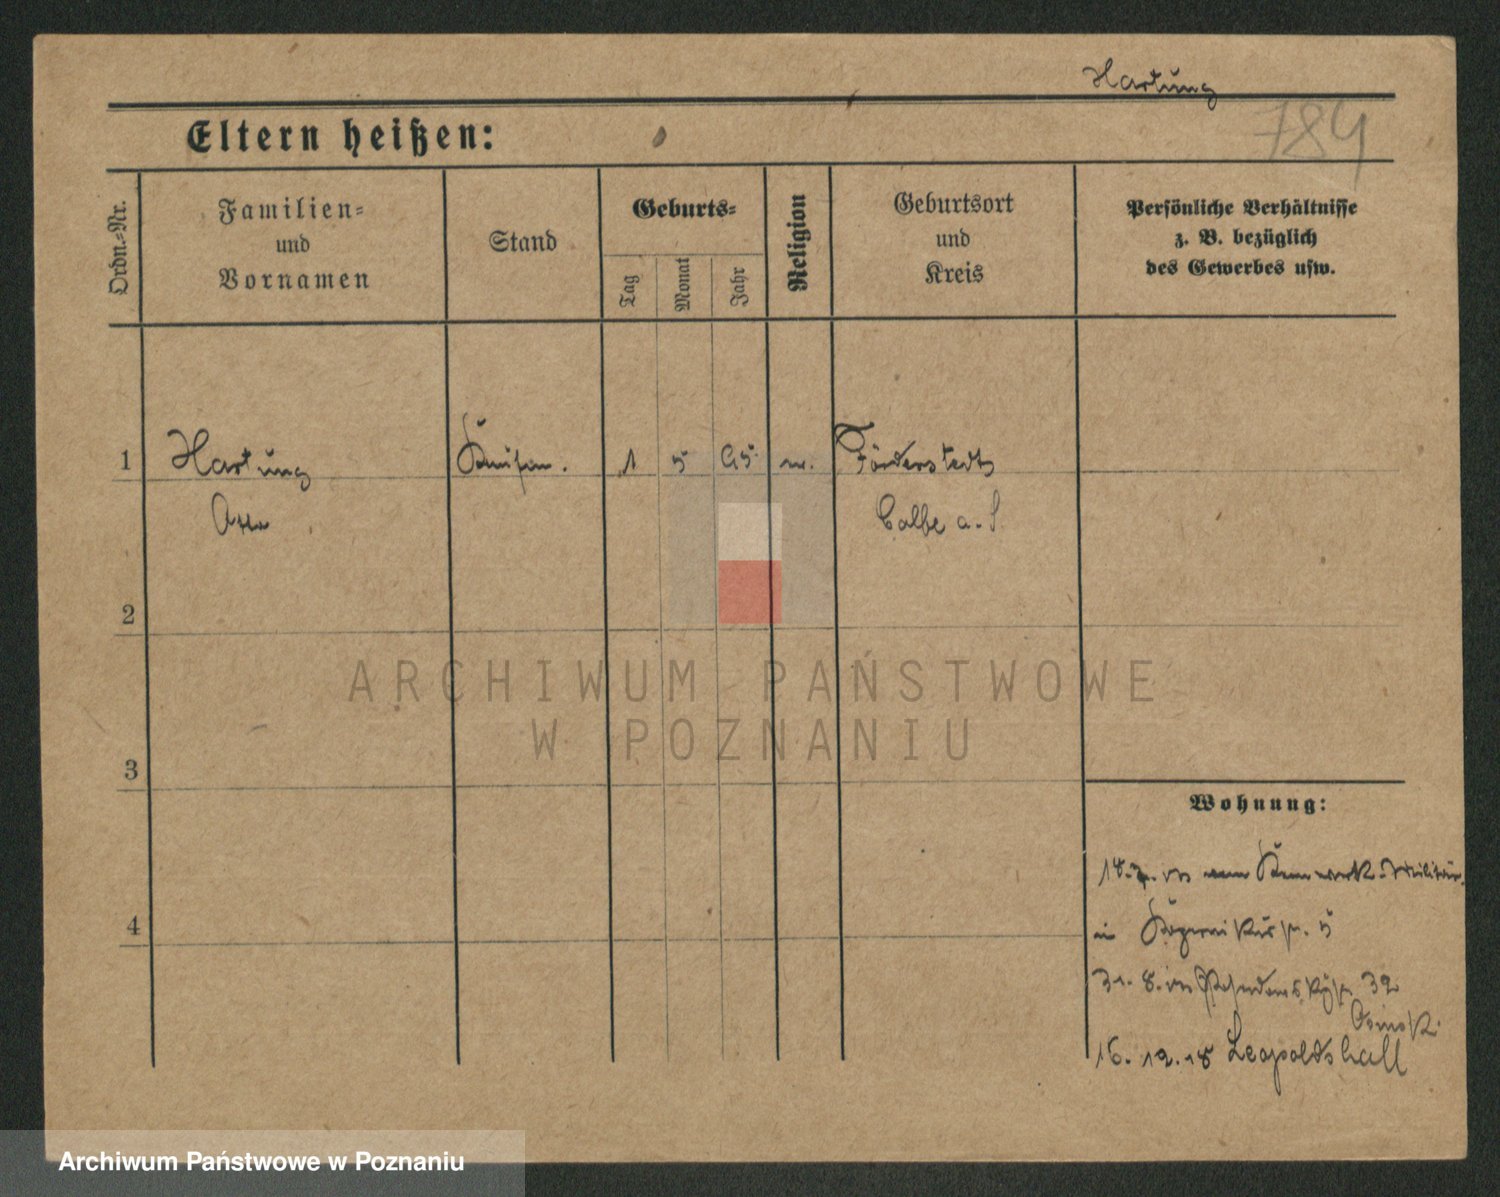 Hartung
784
Eltern heißen:
Ordn.-Nr.
Familien-
und
Vornamen
Stand
Geburts-
Tag
Monat
Jahr
Religion
Geburtsort
und
Kreis
Persönliche Verhältnisse
z. B. bezüglich
des Gewerbes usw.
1 Hartung 1 5 95 Förderstedt
Otto Calbe a. S
2
ARCHIWUM PAŃSTWOWE
W POZNANIU
3
Wohnung:
4
in 5
31. 8. 39
16. 12. 18 Leopoldshall
Archiwum Państwowe w Poznaniu